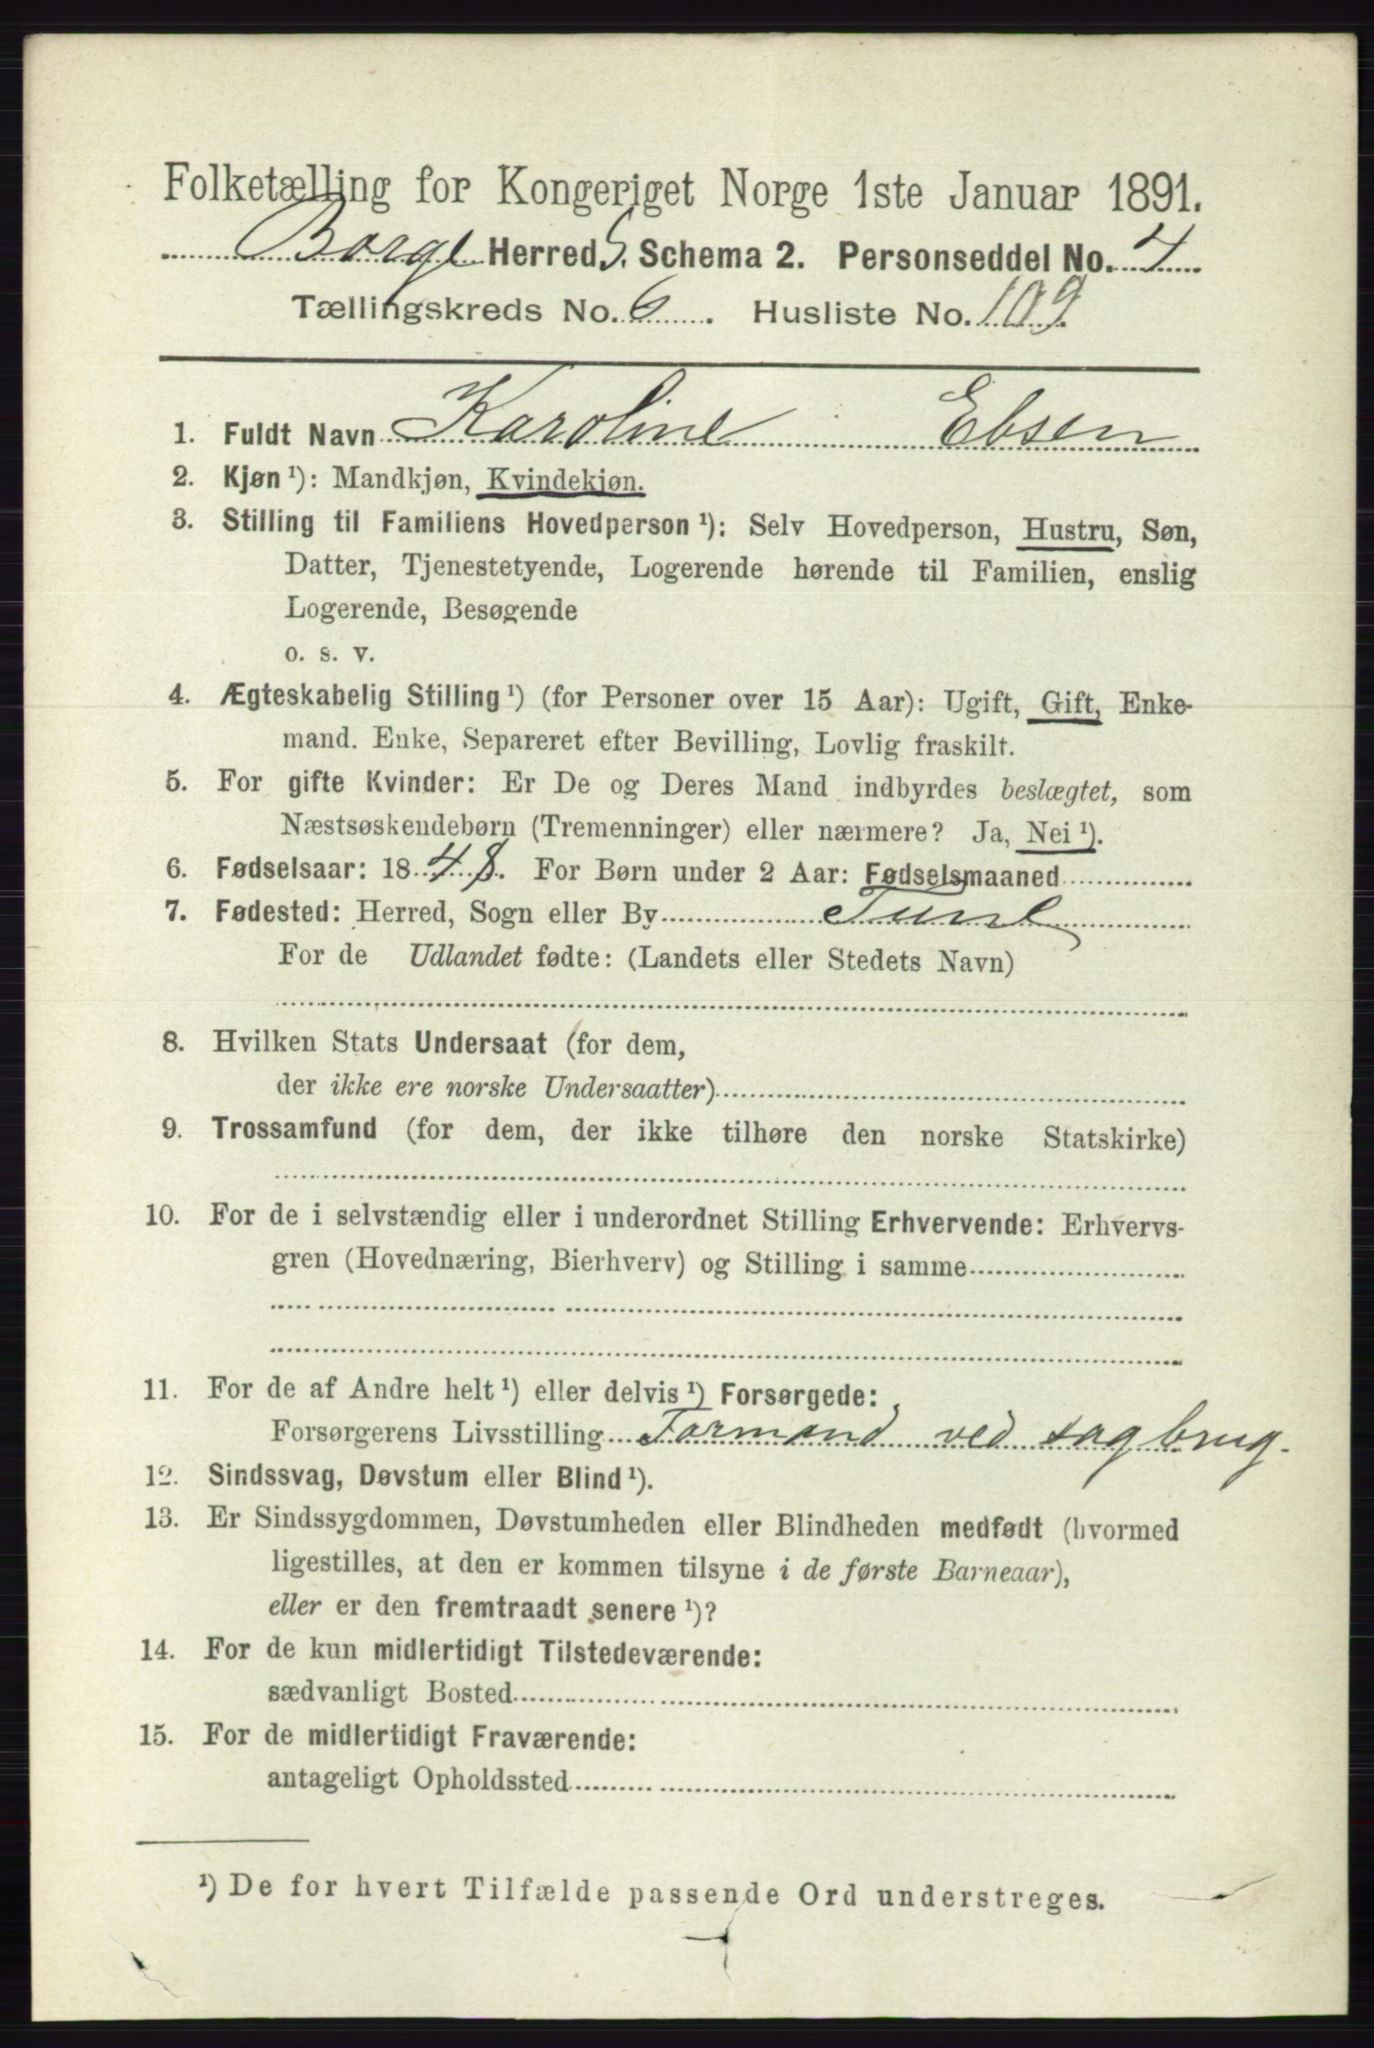 Folketælling for Kongeriget Norge 1ste Januar 1891.
Borge Herred S. Schema 2. Personseddel No. 4
Tællingskreds No. 6. Husliste No. 109.
1. Fuldt Navn Karoline Ebsen
2. Kjøn ¹): Mandkjøn, Kvindekjøn.
3. Stilling til Familiens Hovedperson ¹): Selv Hovedperson, Hustru, Søn,
Datter, Tjenestetyende, Logerende hørende til Familien, enslig
Logerende, Besøgende
o. s. v.
4. Ægteskabelig Stilling ¹) (for Personer over 15 Aar): Ugift, Gift, Enke-
mand. Enke, Separeret efter Bevilling, Lovlig fraskilt.
5. For gifte Kvinder: Er De og Deres Mand indbyrdes beslægtet, som
Næstsøskendebørn (Tremenninger) eller nærmere? Ja, Nei ¹).
6. Fødselsaar: 1848. For Børn under 2 Aar: Fødselsmaaned
7. Fødested: Herred, Sogn eller By Tune
For de Udlandet fødte: (Landets eller Stedets Navn)
8. Hvilken Stats Undersaat (for dem,
der ikke ere norske Undersaatter)
9. Trossamfund (for dem, der ikke tilhøre den norske Statskirke)
10. For de i selvstændig eller i underordnet Stilling Erhvervende: Erhvervs-
gren (Hovednæring, Bierhverv) og Stilling i samme
11. For de af Andre helt ¹) eller delvis ¹) Forsørgede:
Forsørgerens Livsstilling Formand ved sagbrug.
12. Sindssvag, Døvstum eller Blind ¹).
13. Er Sindssygdommen, Døvstumheden eller Blindheden medfødt (hvormed
ligestilles, at den er kommen tilsyne i de første Barneaar),
eller er den fremtraadt senere ¹)?
14. For de kun midlertidigt Tilstedeværende:
sædvanligt Bosted
15. For de midlertidigt Fraværende:
antageligt Opholdssted
¹) De for hvert Tilfælde passende Ord understreges.